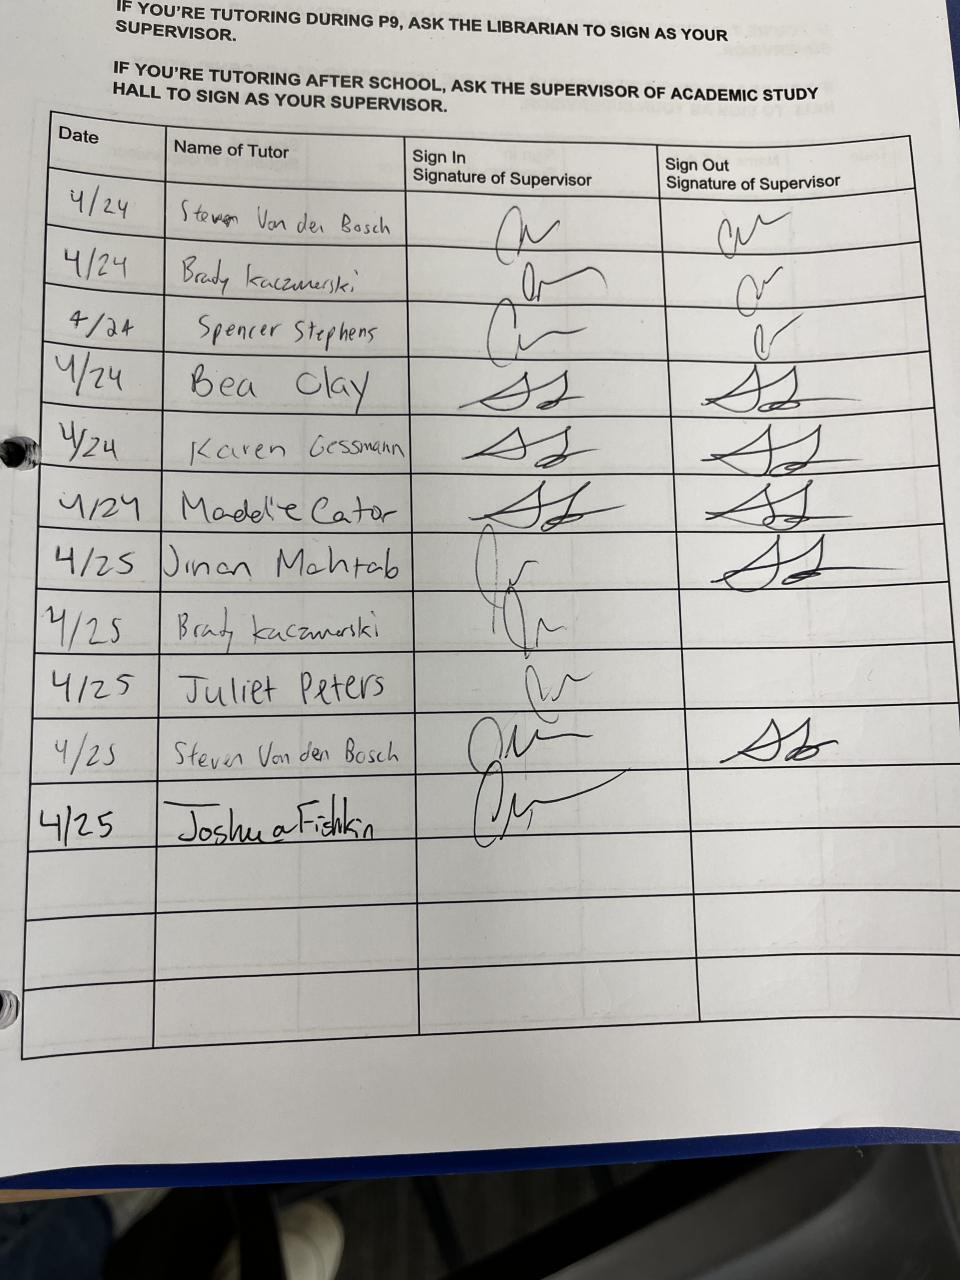 IF YOU'RE TUTORING DURING P9, ASK THE LIBRARIAN TO SIGN AS YOUR
SUPERVISOR.
IF YOU'RE TUTORING AFTER SCHOOL, ASK THE SUPERVISOR OF ACADEMIC STUDY
HALL TO SIGN AS YOUR SUPERVISOR.
Date Name of Tutor Sign In Sign Out
Signature of Supervisor Signature of Supervisor
4/24 Steven Von den Bosch
4/24 Brady Kaczmerski
4/24 Spencer Stephens
4/24 Bea Clay
4/24 Karen Gessmann
4/24 Maddie Cator
4/25 Jinan Mahtab
4/25 Brady Kaczmerski
4/25 Juliet Peters
4/25 Steven Von den Bosch
4/25 Joshua Fishkin